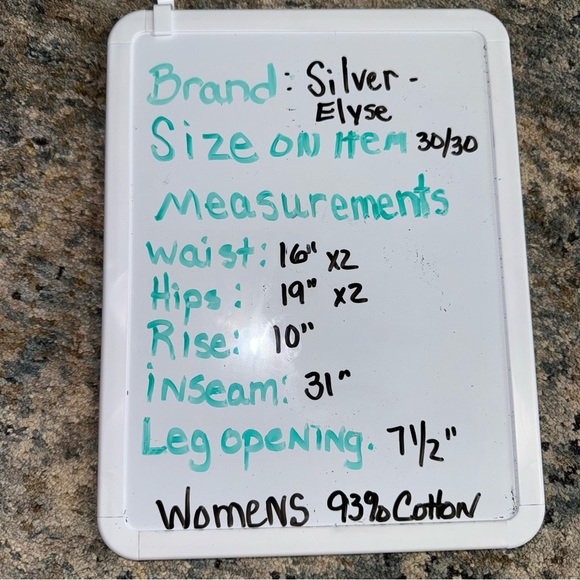 Brand: Silver -
Elyse
Size ON Item 30/30
Measurements
Waist: 16" x2
Hips: 19" x2
Rise: 10"
inseam: 31"
Leg opening. 7 1/2"
Womens 93% Cotton